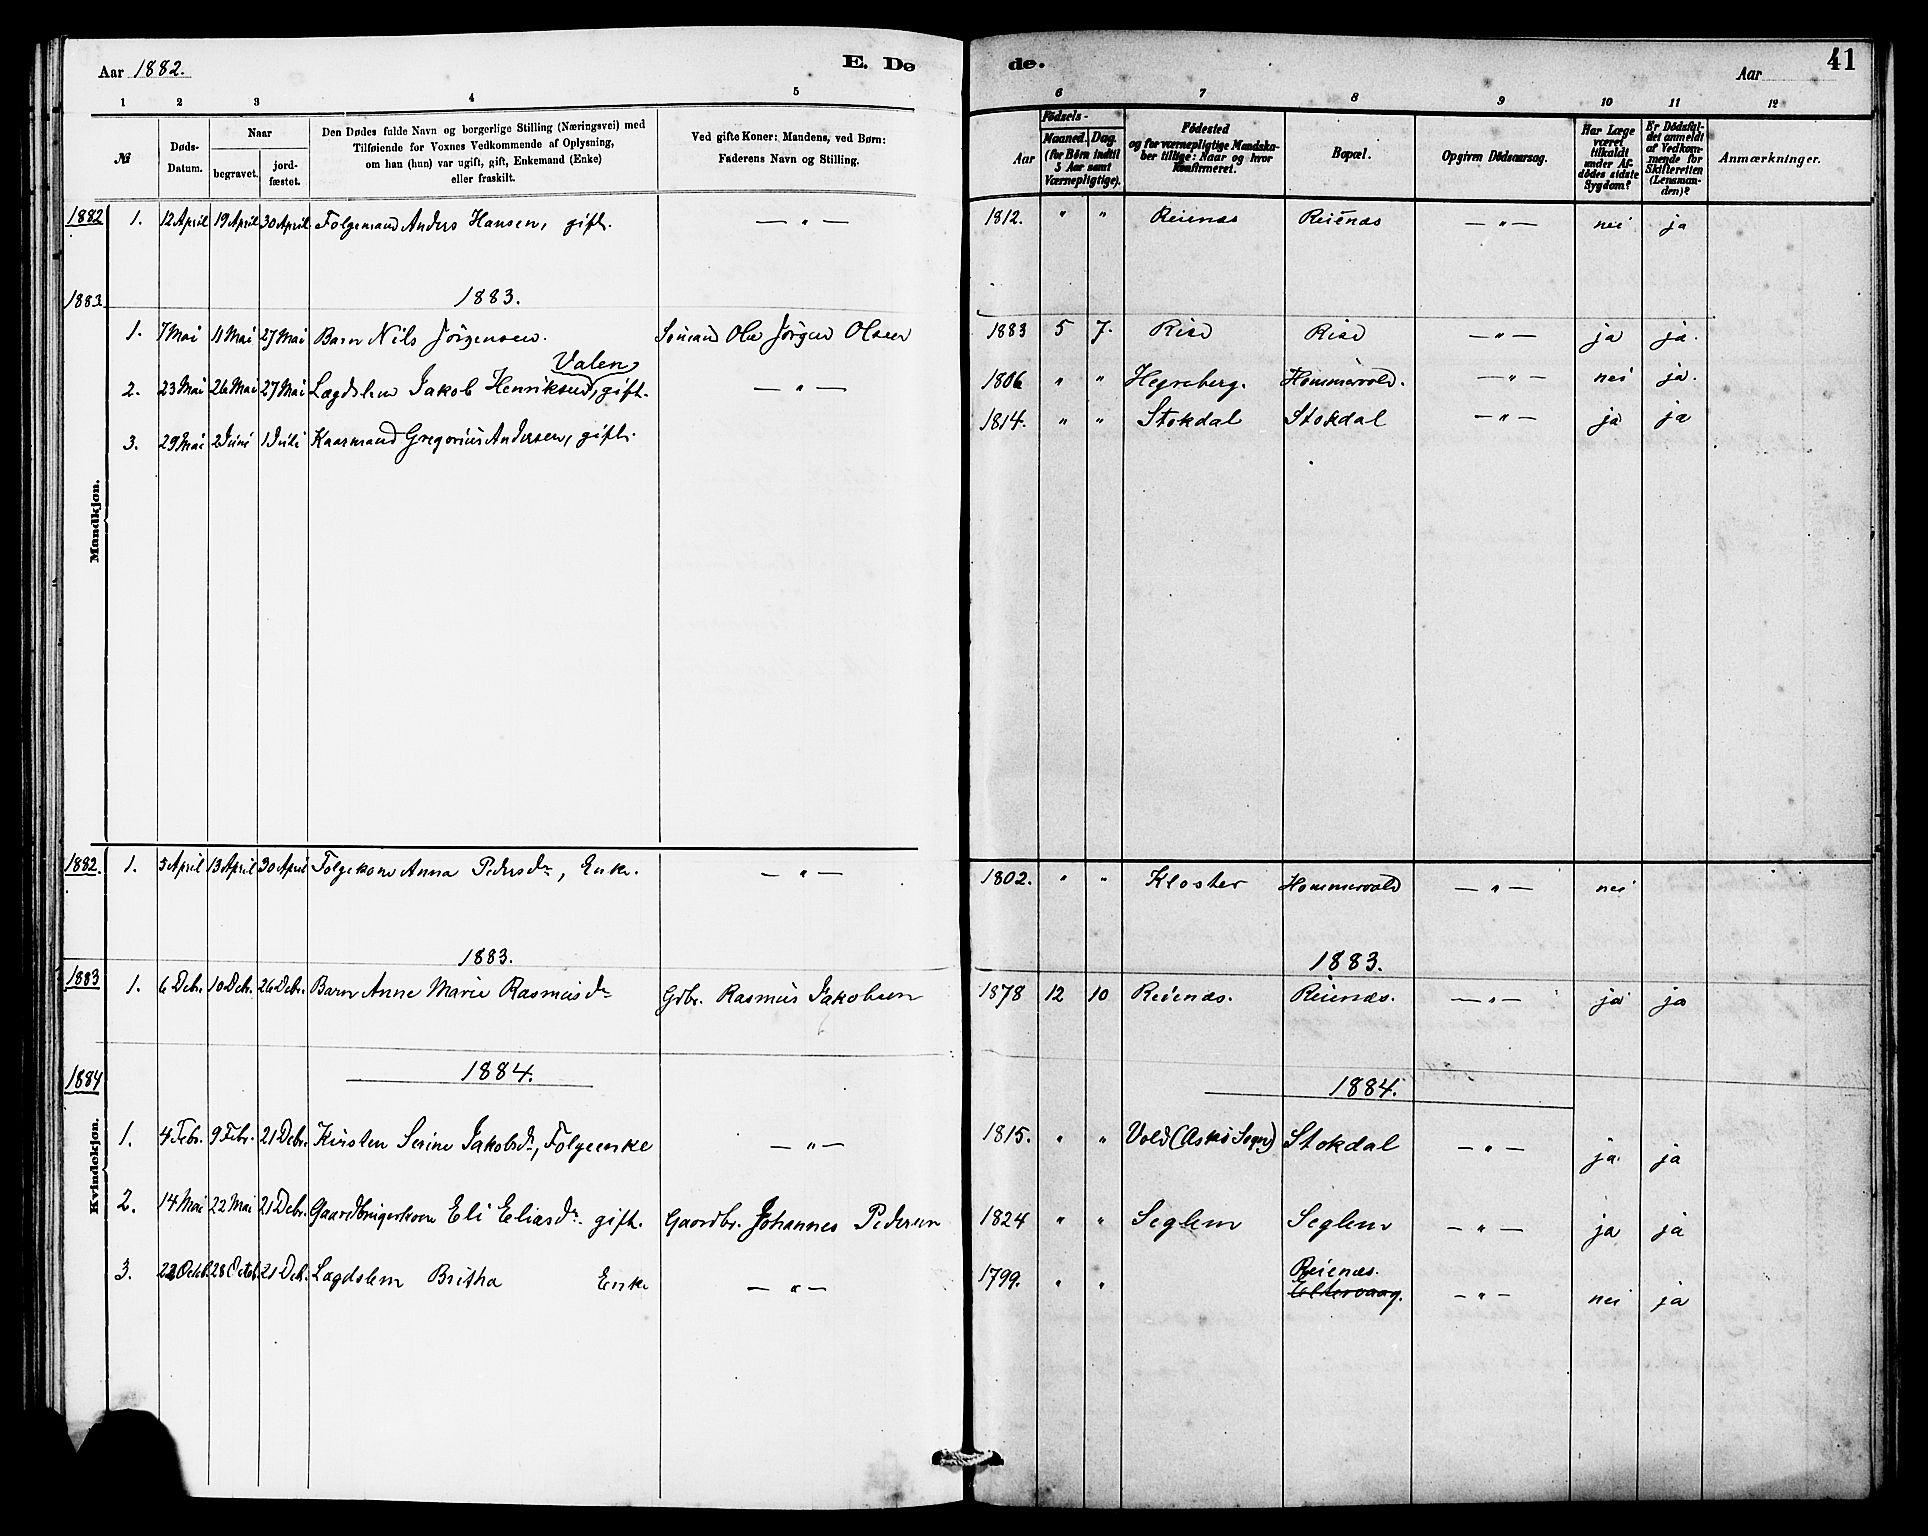 Aar 1882. E. Dø de. Aar 41
1 2 3 4 5 6 7 8 9 10 11 12
№ Døds-Datum. Naar begravet. jordfæstet. Den Dødes fulde Navn og borgerlige Stilling (Næringsvei) med Tilføiende for Voxnes Vedkommende af Oplysning, om han (hun) var ugift, gift, Enkemand (Enke) eller fraskilt. Ved gifte Koner: Mandens, ved Børn: Faderens Navn og Stilling. Fødsels- Aar Maaned. Dag. (for Børn indtil 5 Aar samt Værnepligtige). Fødested og for værnepligtige Mandskaber tillige: Naar og hvor Konfirmeret. Bopæl. Opgiven Dødsaarsag. Har Læge været tilkaldt under Afdødes sidste Sygdom? Er Dødsfaldet anmeldt af Vedkommende for Skifteretten (Lensmanden)? Anmærkninger.
Mandkjøn.
1882 1. 12 April 19 April 30 April Folgemand Anders Hansen, gift. — " — 1812. " " Reienæs Reienæs — " — nei ja
1883. 1883.
1. 7 Mai 11 Mai 27 Mai Barn Nils Jörgensen. Sömand Ole Jörgen Olsen 1883 5 7. Risø Risø — " — ja ja.
Valen
2. 23 Mai 26 Mai 27 Mai Lægdslem Jakob Henriksen, gift. — " — 1806 " " Hegreberg. Hommervold. — " — nei ja.
3. 29 Mai 2 Juni 1 Juli Kaarmand Gregorius Andersen, gift. 1814. " " Stokdal Stokdal — " — ja ja
Kvindekjøn.
1882. 1. 5 April 13 April 30 April Folgekone Anna Pedersdr, Enke. — " — 1802. " " Kloster Hommervold — " — nei
1883. 1883.
1883 1. 6 Debr. 10 Debr. 26 Debr. Barn Anne Marie Rasmusdr Gdbr. Rasmus Jakobsen 1878 12 10 Reienæs. Reienæs. — " — ja ja
1884 1884. 1884.
1. 4 Febr. 9 Febr. 21 Debr. Kirsten Serine Jakobsdr, Folgeenke — " — 1815. " " Vold (Askø Sogn) Stokdal — " — ja. ja
2. 14 Mai 22 Mai 21 Debr. Gaardbrugerkone Eli Eliasdr. gift. Gaardbr. Johannes Pedersen 1824 " " Seglem Seglem — " — ja ja
Reienæs.
3. 22 Octob. 28 Octob. 21 Deb. Lægdslem Britha Enke — " — 1799. " " Eltervaag. — " — nei ja